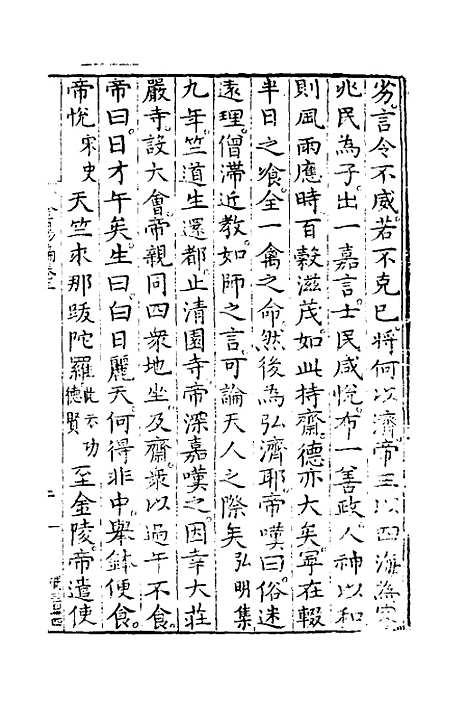 劣言令不威若不克已將何以濟帝王以四海為家
兆民為子出一嘉言士民咸悅布一善政人神以和
則風雨應時百穀滋茂如此持齋德亦大矣寧在輟
半日之飡全一禽之命然後為弘濟耶帝嘆曰俗迷
遠理僧滯近教如師之言可論天人之際矣弘明集
九年竺道生還都止清園寺帝深嘉嘆之因幸大莊
嚴寺設大會帝親同四衆地坐及齋衆以過午不食
帝曰日才午矣生曰白日麗天何得非中舉鉢便食
帝悅宋史天竺求那跋陀羅此云功德賢至金陵帝遣使